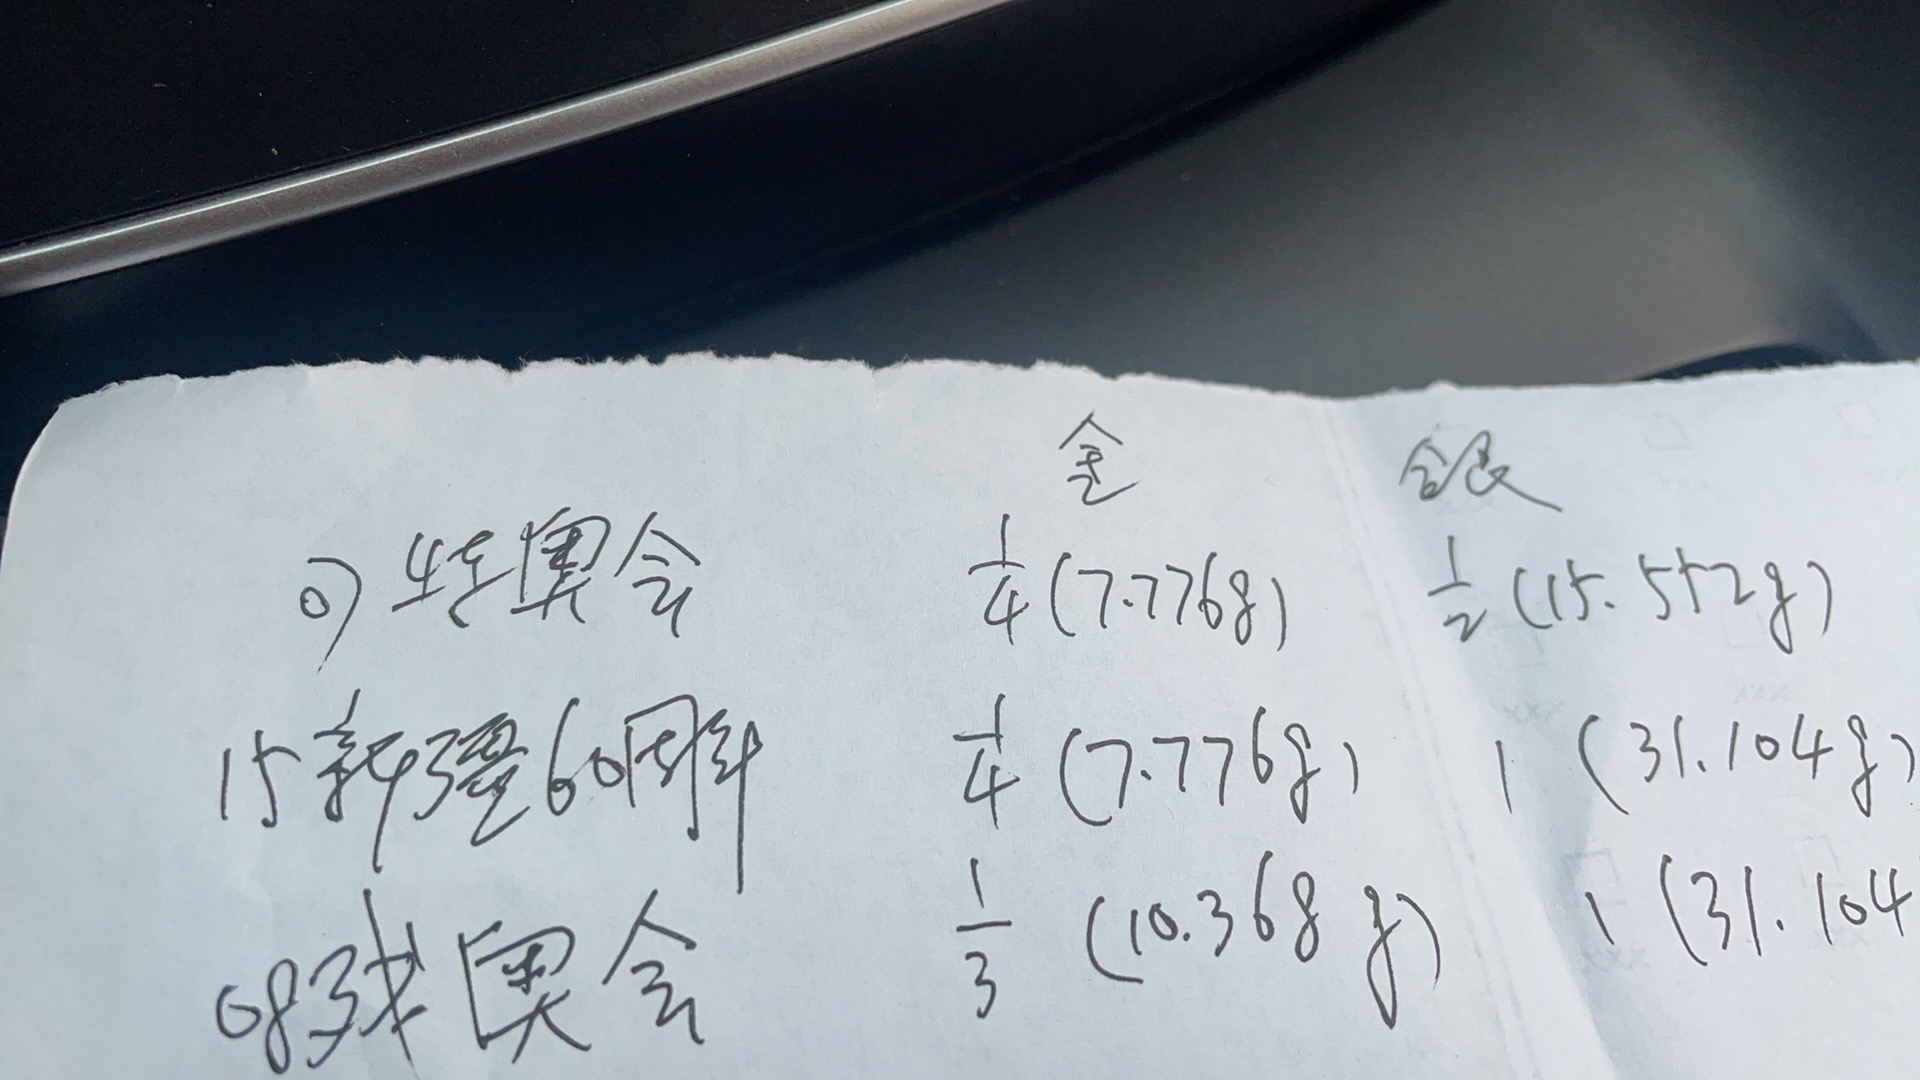 金 银
07特奥会 1/4 (7.776g) 1/2 (15.552g)
15新疆60周年 1/4 (7.776g) 1 (31.104g)
08残奥会 1/3 (10.368g) 1 (31.104